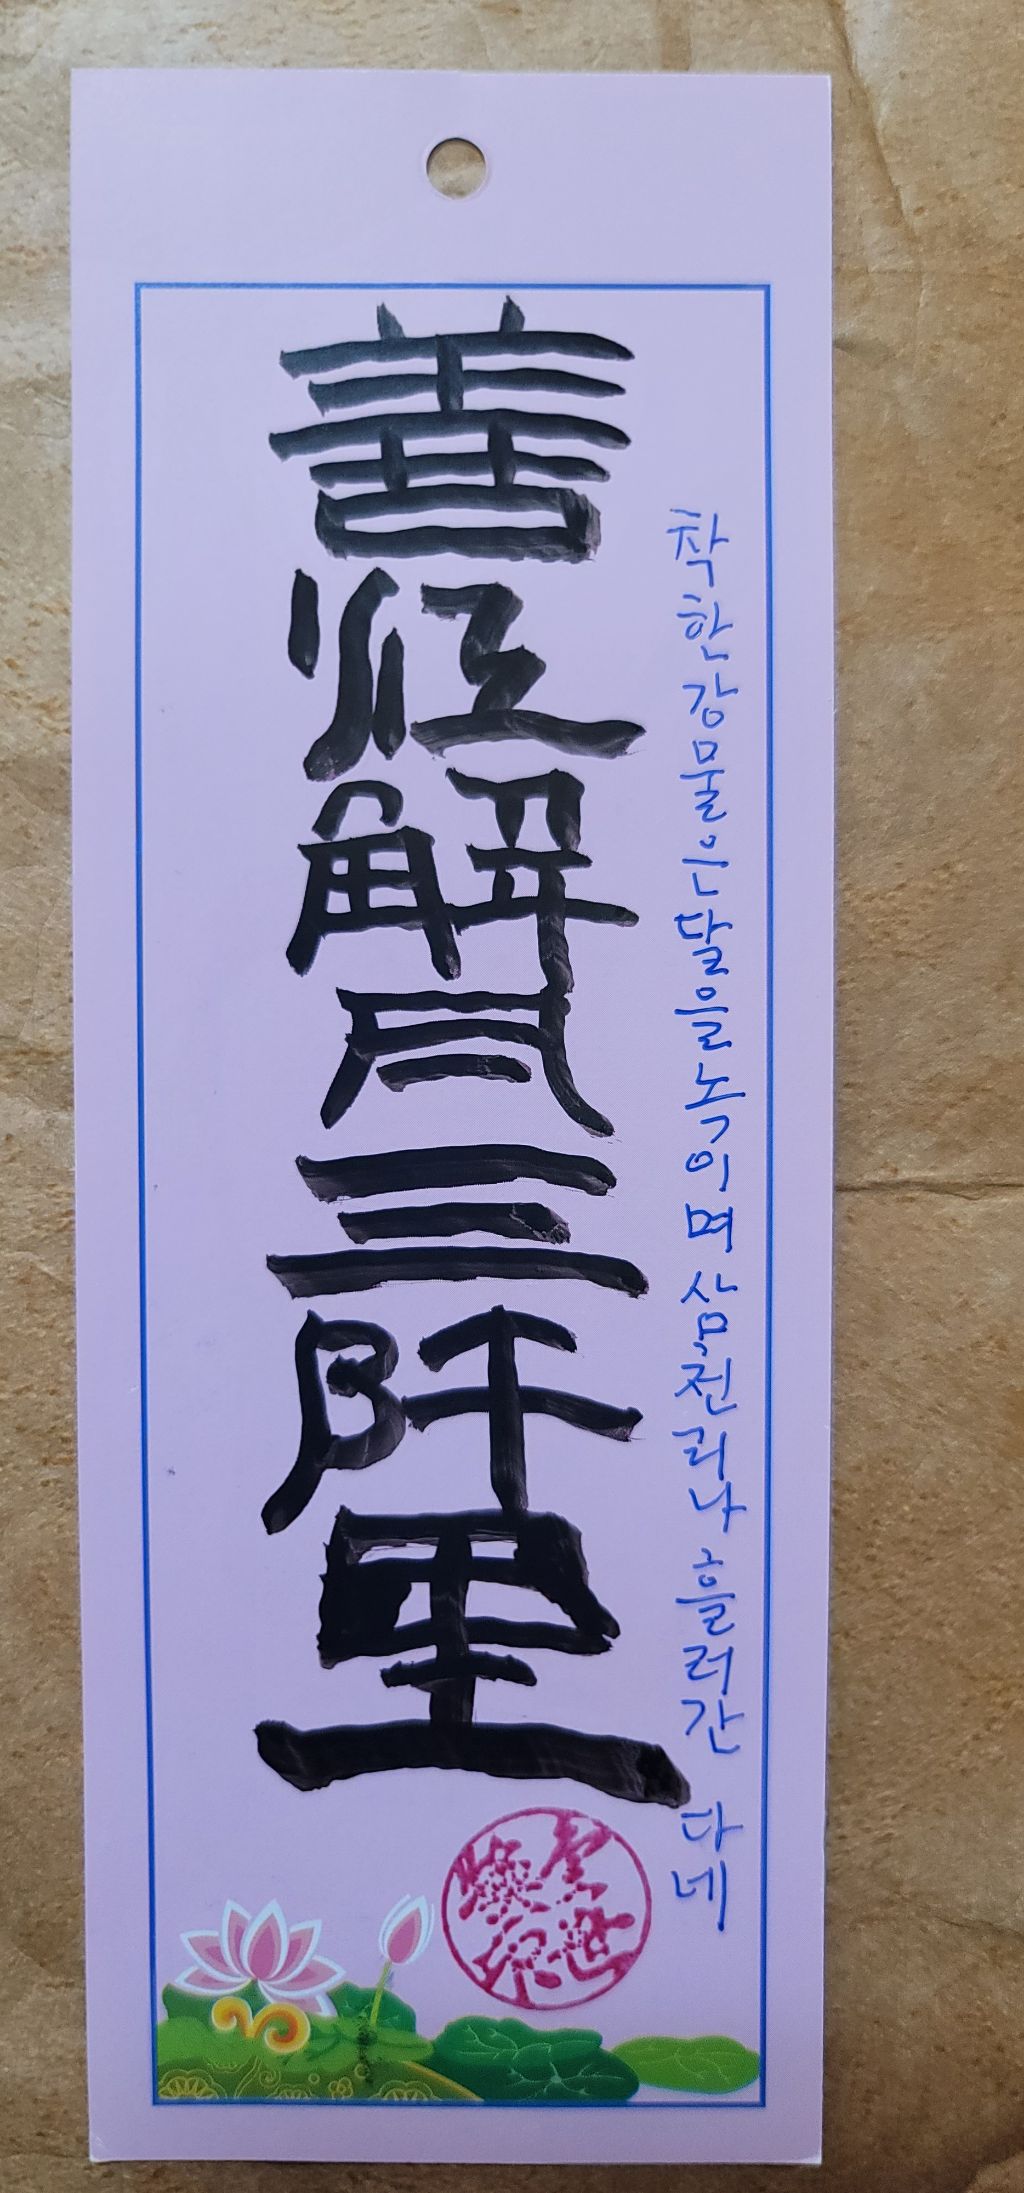 善江解月三阡里
착한강물인달을녹이며 삼천리나 흘러간 다네